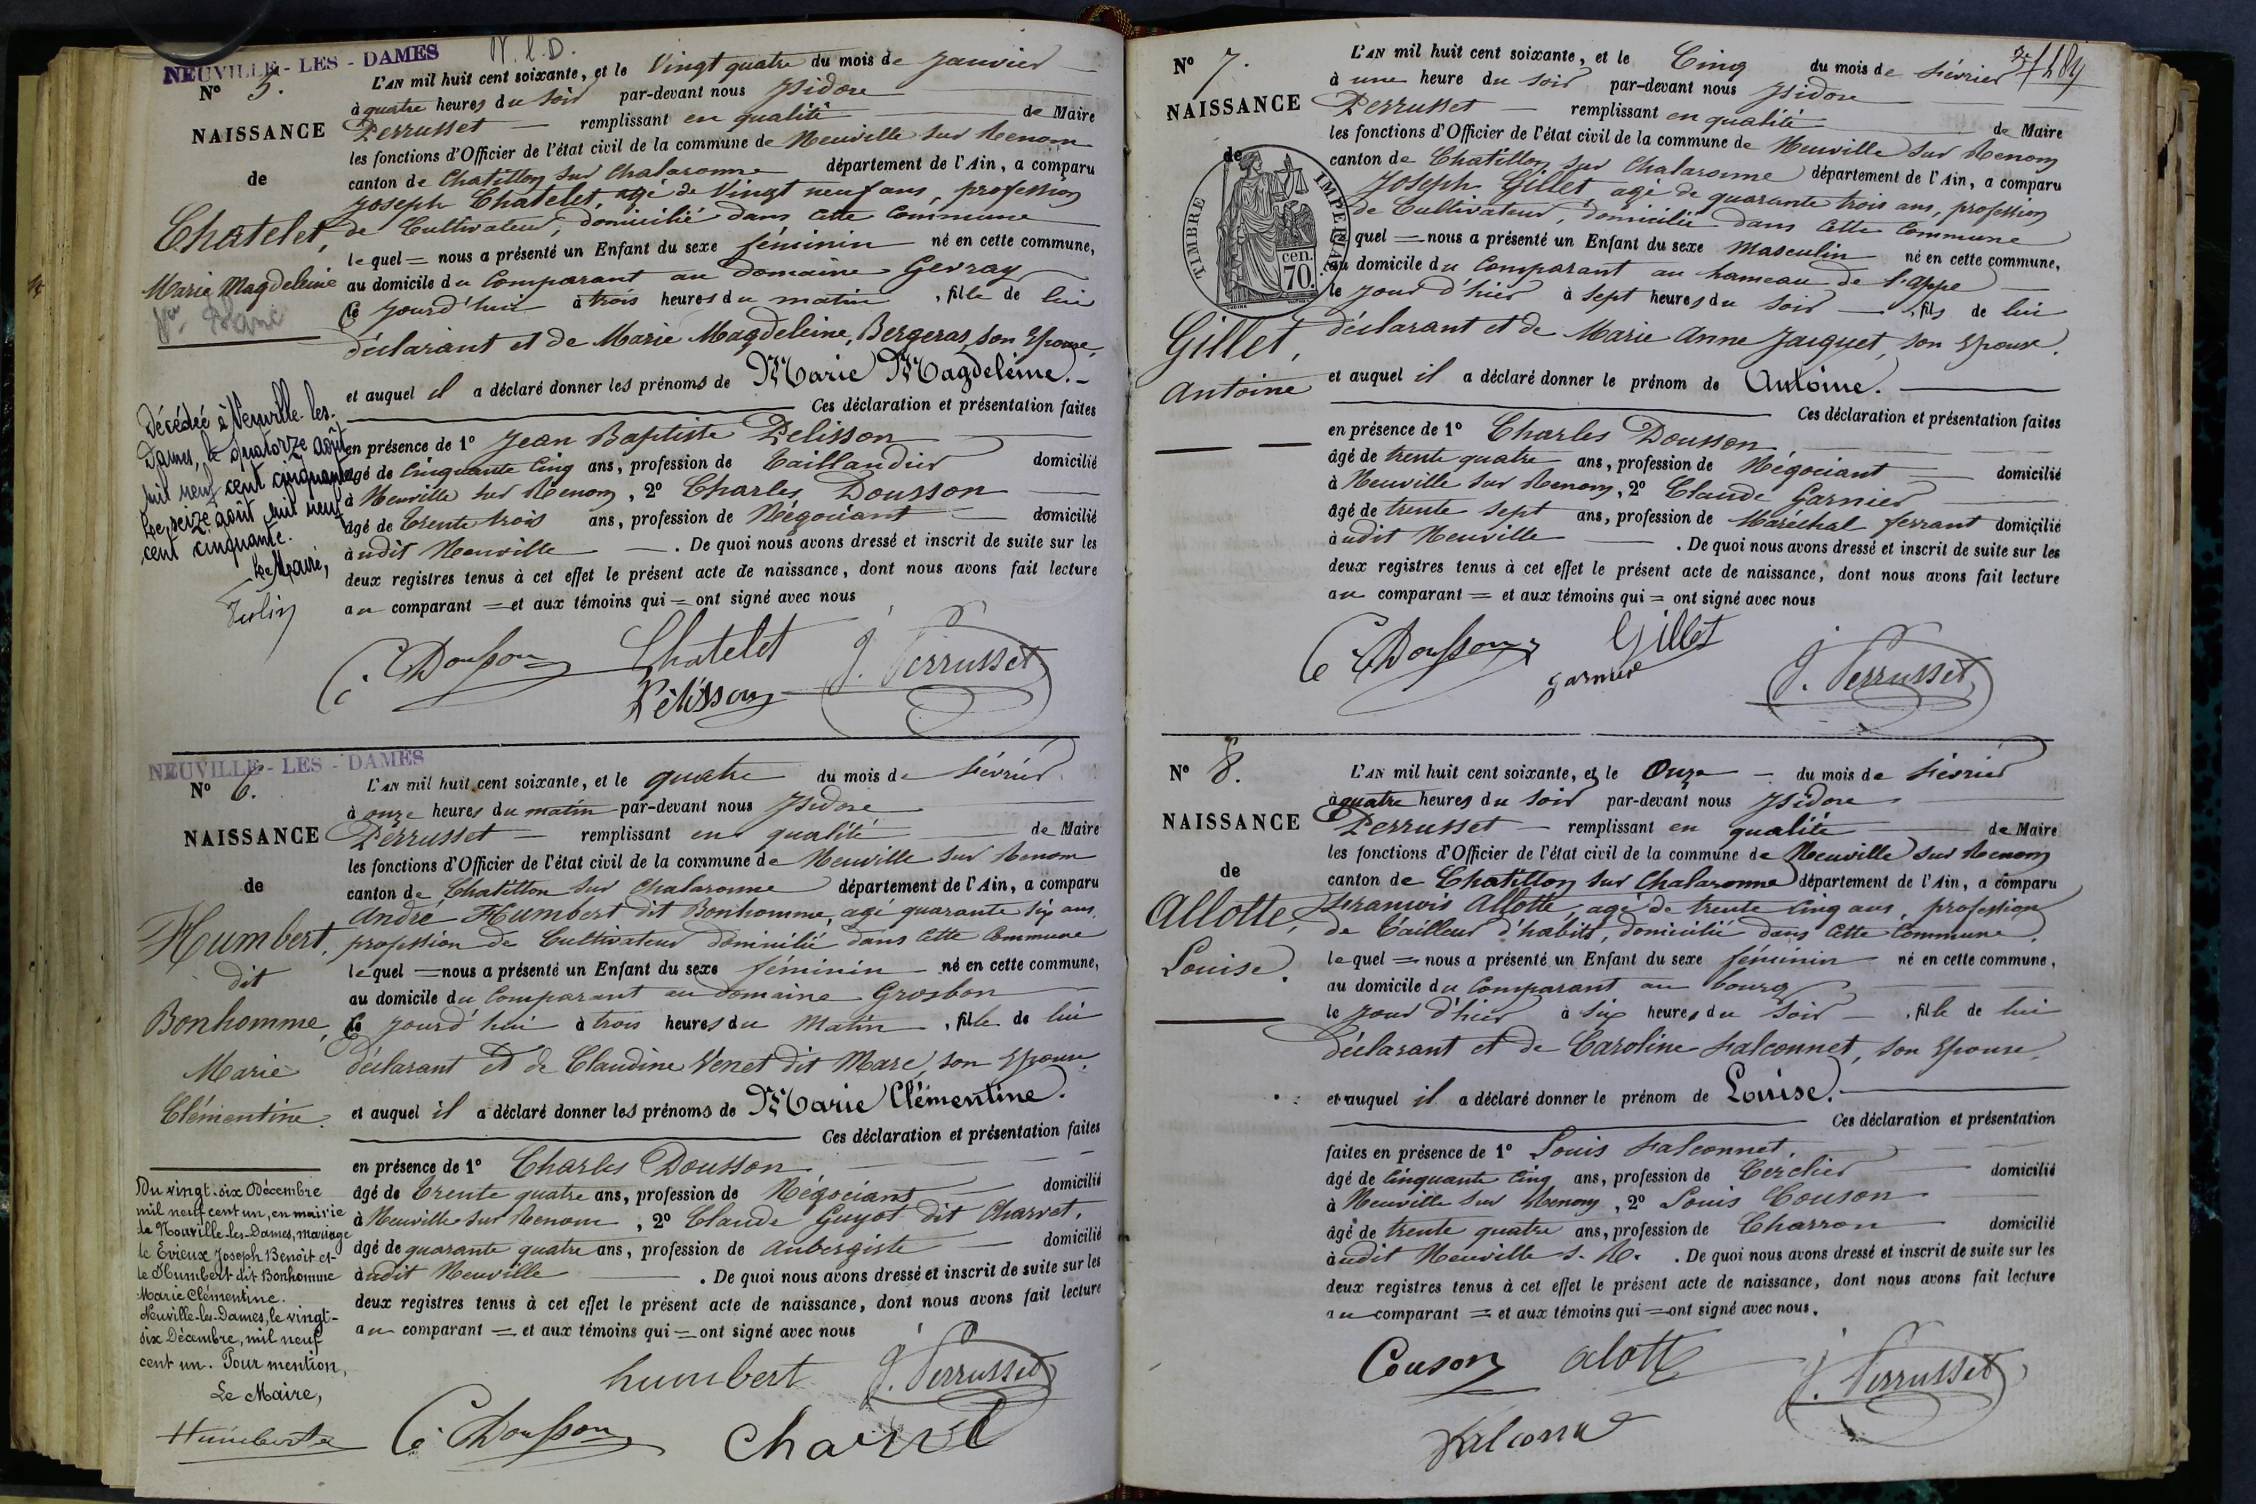 NEUVILLE - LES - DAMES
N. L. D.
N° 5.
NAISSANCE
de
Chatelet,
Marie Magdeleine
Vve Blanc
Décédée à Neuville-les-
Dames, le quatorze août
mil neuf cent cinquante
Le seize août mil neuf
cent cinquante.
Le Maire,
L'AN mil huit cent soixante, et le Vingt quatre du mois de Janvier
à quatre heures du soir par-devant nous Isidore
Perrusset remplissant en qualité de Maire
les fonctions d'Officier de l'état civil de la commune de Neuville sur Renom
canton de Chatillon sur Chalaronne département de l'Ain, a comparu
Joseph Chatelet, agé de Vingt neuf ans, profession
de Cultivateur, domicilié dans cette Commune
lequel = nous a présenté un Enfant du sexe féminin né en cette commune,
au domicile du Comparant au domaine Gevray
Ce jourd'hui à trois heures du matin, fille de lui
déclarant et de Marie Magdeleine Bergeras, son Epouse,
et auquel il a déclaré donner les prénoms de Marie Magdeleine.
Ces déclaration et présentation faites
en présence de 1° Jean Baptiste Pelisson
âgé de Cinquante Cinq ans, profession de Taillandier domicilié
à Neuville sur Renom, 2° Charles Dousson
âgé de trente trois ans, profession de Négociant domicilié
audit Neuville. De quoi nous avons dressé et inscrit de suite sur les
deux registres tenus à cet effet le présent acte de naissance, dont nous avons fait lecture
au comparant = et aux témoins qui = ont signé avec nous
C. Dousson Chatelet J. Perrusset
Pélisson
NEUVILLE - LES - DAMES
N° 6.
NAISSANCE
de
Humbert,
dit
Bonhomme,
Marie
Clémentine.
Du vingt-six Décembre
mil neuf cent un, en mairie
de Neuville-les-Dames, mariage
de Evieux Joseph Benoît et
de Humbert dit Bonhomme
Marie Clémentine.
Neuville-les-Dames, le vingt-
six Décembre, mil neuf
cent un. Pour mention,
Le Maire,
L'AN mil huit cent soixante, et le quatre du mois de février
à onze heures du matin par-devant nous Isidore
Perrusset remplissant en qualité de Maire
les fonctions d'Officier de l'état civil de la commune de Neuville sur Renom
canton de Chatillon sur Chalaronne département de l'Ain, a comparu
André Humbert dit Bonhomme, agé quarante six ans,
profession de Cultivateur domicilié dans cette Commune
lequel = nous a présenté un Enfant du sexe féminin né en cette commune,
au domicile du Comparant au domaine Grosbon
Ce jourd'hui à trois heures du Matin, fille de lui
déclarant et de Claudine Venet dit Mare, son Epouse
et auquel il a déclaré donner les prénoms de Marie Clémentine.
Ces déclaration et présentation faites
en présence de 1° Charles Dousson
âgé de trente quatre ans, profession de Négociant domicilié
à Neuville sur Renom, 2° Claude Guyot dit Charvet,
âgé de quarante quatre ans, profession de Aubergiste domicilié
audit Neuville. De quoi nous avons dressé et inscrit de suite sur les
deux registres tenus à cet effet le présent acte de naissance, dont nous avons fait lecture
au comparant = et aux témoins qui = ont signé avec nous
humbert J. Perrusset
C. Dousson
N° 7.
NAISSANCE
de
TIMBRE IMPERIAL
cen.
70.
Gillet,
Antoine
L'AN mil huit cent soixante, et le Cinq du mois de février
à une heure du soir par-devant nous Isidore
Perrusset remplissant en qualité de Maire
les fonctions d'Officier de l'état civil de la commune de Neuville sur Renom
canton de Chatillon sur Chalaronne département de l'Ain, a comparu
Joseph Gillet agé de quarante trois ans, profession
de Cultivateur, domicilié dans cette Commune
lequel = nous a présenté un Enfant du sexe Masculin né en cette commune,
au domicile du Comparant au hameau de l'appe
le jour d'hier à sept heures du soir, fils de lui
déclarant et de Marie Anne Jacquet, son Epouse.
et auquel il a déclaré donner le prénom de Antoine.
Ces déclaration et présentation faites
en présence de 1° Charles Dousson
âgé de trente quatre ans, profession de Négociant domicilié
à Neuville sur Renom, 2° Claude Garnier
âgé de trente sept ans, profession de Maréchal ferrant domicilié
audit Neuville. De quoi nous avons dressé et inscrit de suite sur les
deux registres tenus à cet effet le présent acte de naissance, dont nous avons fait lecture
au comparant = et aux témoins qui = ont signé avec nous
C. Dousson Gillet
garnier J. Perrusset
N° 8.
NAISSANCE
de
Allotte,
Louise.
L'AN mil huit cent soixante, et le Onze du mois de février
à quatre heures du soir par-devant nous Isidore
Perrusset remplissant en qualité de Maire
les fonctions d'Officier de l'état civil de la commune de Neuville sur Renom
canton de Chatillon sur Chalaronne département de l'Ain, a comparu
François Allotte, agé de trente cinq ans, profession
de Tailleur d'habits, domicilié dans cette Commune,
lequel = nous a présenté un Enfant du sexe féminin né en cette commune,
au domicile du Comparant au bourg
le jour d'hier à six heures du soir, fille de lui
déclarant et de Caroline Falconnet, son Epouse,
et auquel il a déclaré donner le prénom de Louise.
Ces déclaration et présentation
faites en présence de 1° Louis Falconnet,
âgé de Cinquante cinq ans, profession de Cerclier domicilié
à Neuville sur Renom, 2° Louis Couson
âgé de trente quatre ans, profession de Charron domicilié
audit Neuville s. R. . De quoi nous avons dressé et inscrit de suite sur les
deux registres tenus à cet effet le présent acte de naissance, dont nous avons fait lecture
au comparant = et aux témoins qui = ont signé avec nous.
Couson alotte J. Perrusset